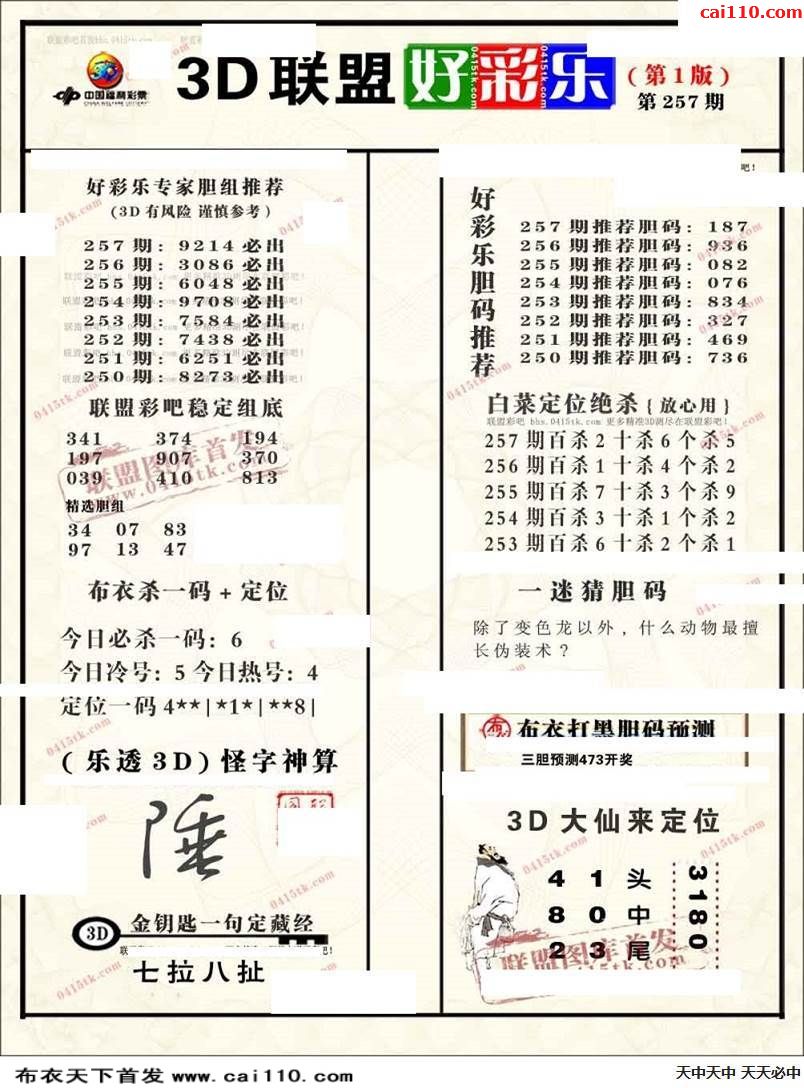 cai110.com
中国福利彩票
CHINA WELFARE LOTTERY
3D联盟好彩乐
(第1版)
第257期
好彩乐专家胆组推荐
(3D有风险 谨慎参考)
257期: 9214必出
256期: 3086必出
255期: 6048必出
254期: 9708必出
253期: 7584必出
252期: 7438必出
251期: 8651必出
250期: 8273必出
联盟彩吧稳定组底
341 374 194
197 907 370
039 410 813
精选胆组
34 07 83
97 13 47
布衣杀一码+定位
今日必杀一码: 6
今日冷号: 5 今日热号: 4
定位一码 4**|*1*|**8|
(乐透3D)怪字神算
陲
3D
金钥匙一句定藏经
七拉八扯
好彩乐胆码推荐
257期推荐胆码: 187
256期推荐胆码: 936
255期推荐胆码: 082
254期推荐胆码: 076
253期推荐胆码: 834
252期推荐胆码: 327
251期推荐胆码: 469
250期推荐胆码: 736
白菜定位绝杀{放心用}
联盟彩吧 bbs.0415tk.com 更多精准3D测尽在联盟彩吧!
257期百杀2十杀6个杀5
256期百杀1十杀4个杀2
255期百杀7十杀3个杀9
254期百杀3十杀1个杀2
253期百杀6十杀2个杀1
一迷猜胆码
除了变色龙以外, 什么动物最擅
长伪装术?
布衣打墨胆码预测
三胆预测473开奖
3D大仙来定位
4 1 头
8 0 中
2 3 尾
3180
联盟图库首发
www.0415tk.com
联盟图库首发
www.0415tk.com
布衣天下首发 www.cai110.com
天中天中 天天必中